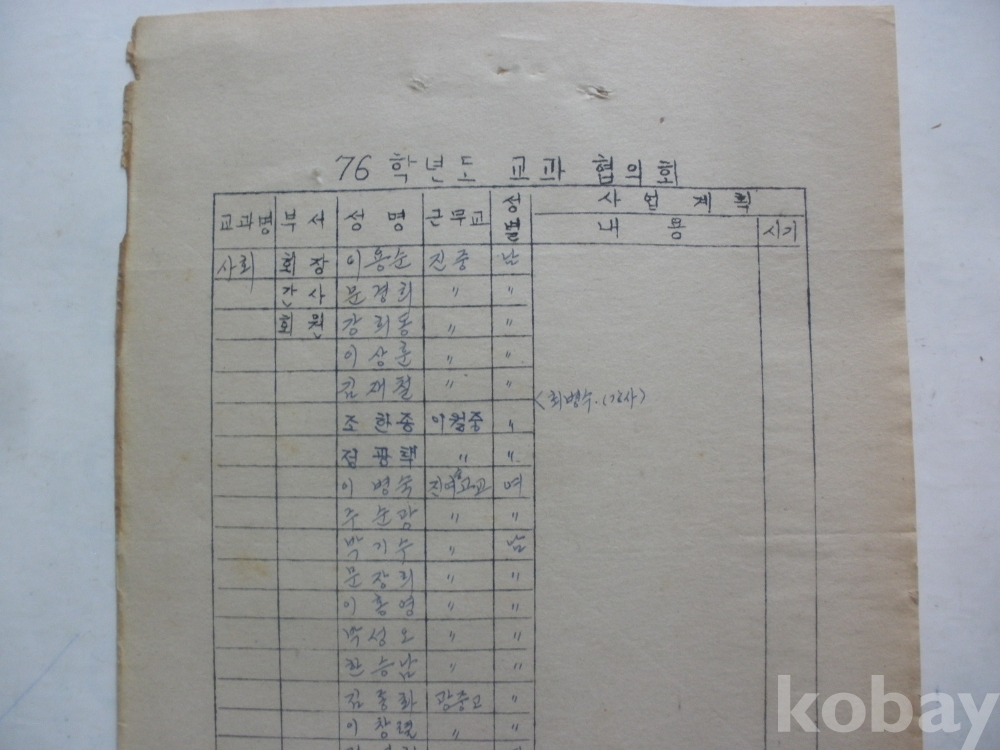 76 학년도 교과 협의회
교과명 부서 성명 근무교 성별 사업계획
내용 시기
사회 회장 이용순 진중 남
간사 문경희 〃 〃
회원 강희동 〃 〃
이상훈 〃 〃
김재철 〃 〃
<최병수.(강사)
조한종 이월중 〃
정광택 〃 〃
이병숙 진여고교 여
주순광 〃 〃
박기수 〃 남
문장희 〃 〃
이홍영 〃 〃
박성오 〃 〃
한승남 〃 〃
김종화 광중고 〃
이창렬 〃 〃
kobay